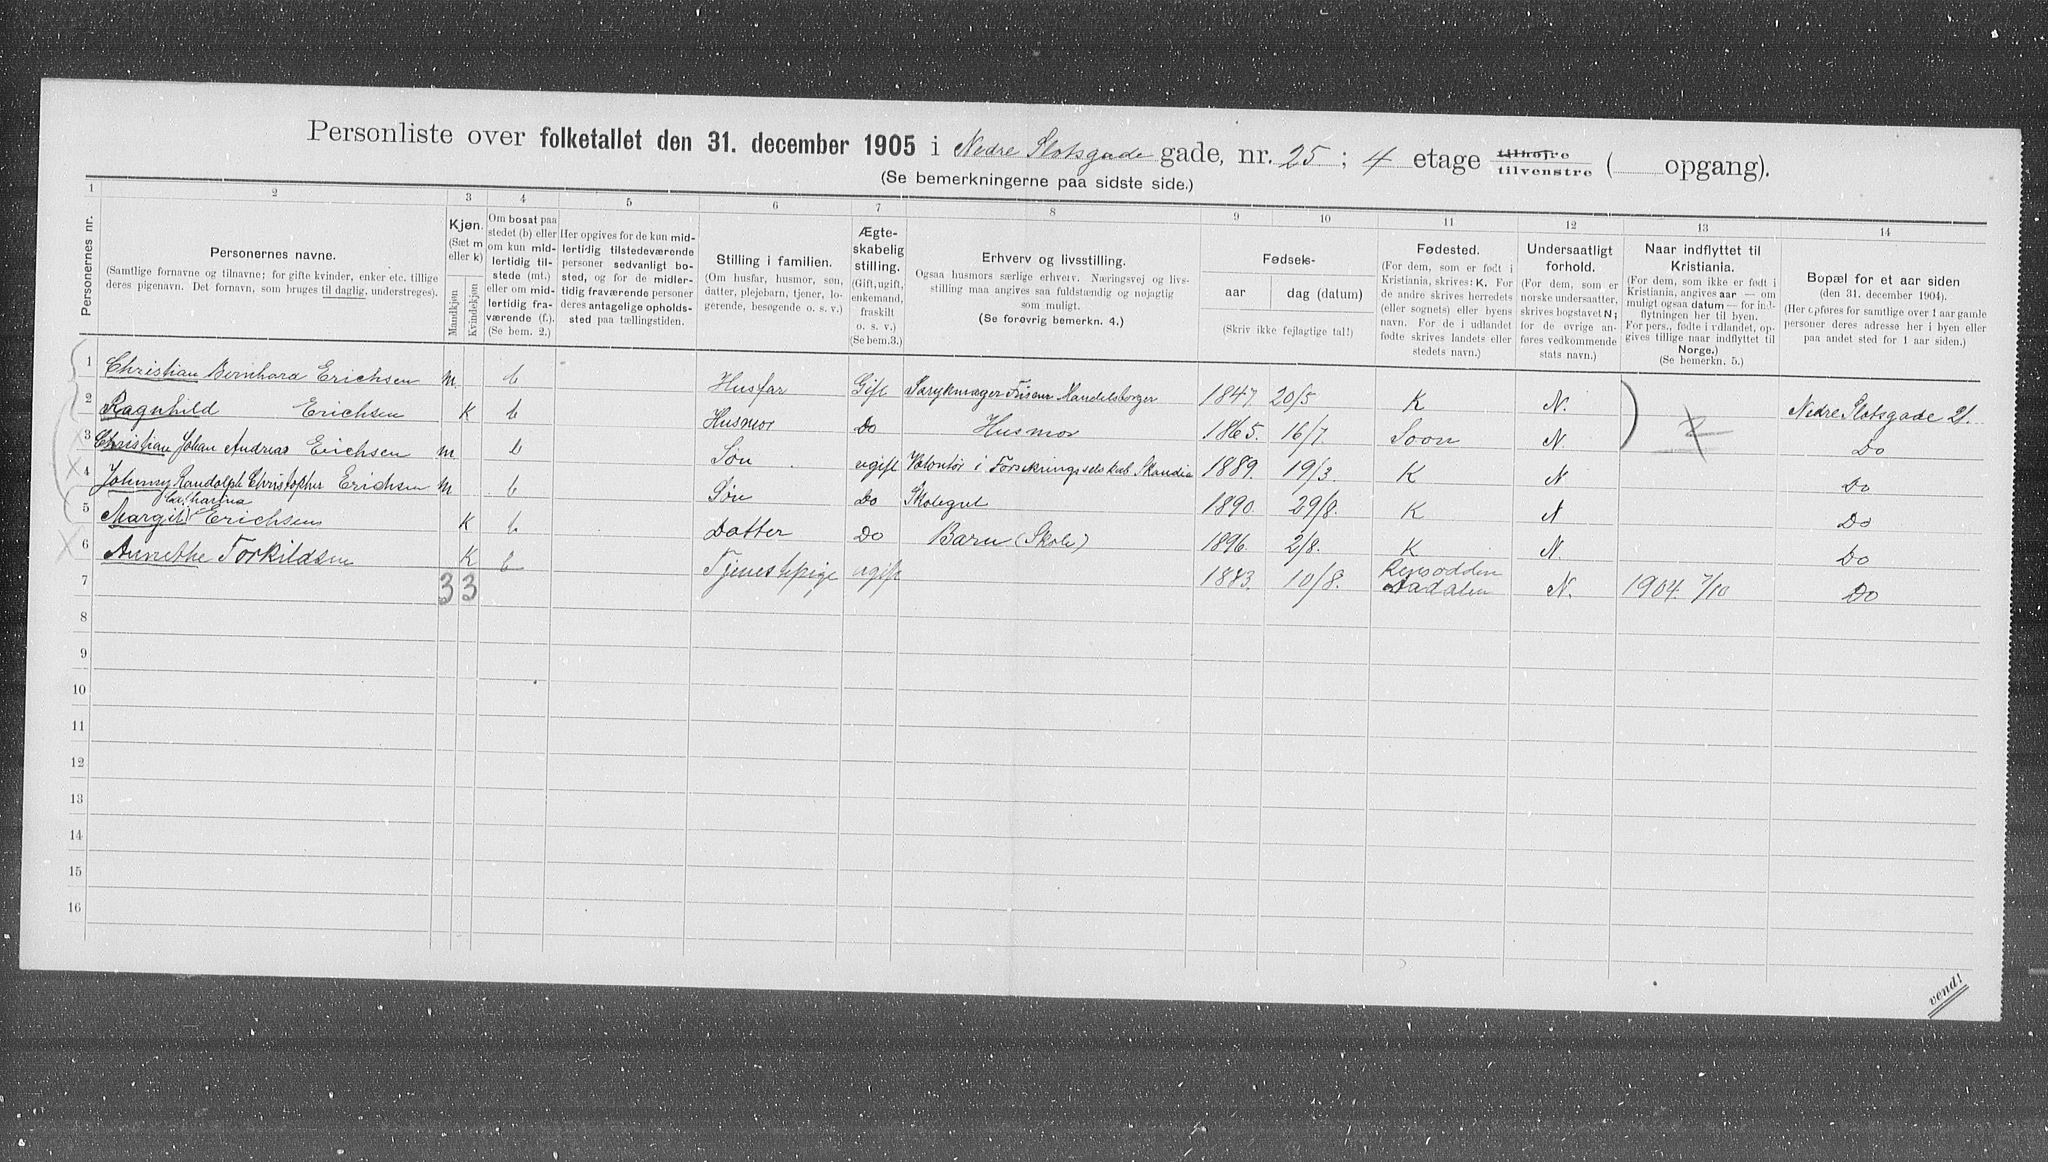 Personliste over folketallet den 31. december 1905 i Nedre Slotsgade gade, nr. 25 ; 4 etage tilhøjre tilvenstre ( opgang).
(Se bemerkningerne paa sidste side.)
1 2 3 4 5 6 7 8 9 10 11 12 13 14
Personernes nr.
Personernes navne.
(Samtlige fornavne og tilnavne; for gifte kvinder, enker etc. tillige
deres pigenavn. Det fornavn, som bruges til daglig, understreges).
Kjøn.
(Sæt m
eller k)
Mandkjøn
Kvindekjøn
Om bosat paa
stedet (b) eller
om kun mid-
lertidig til-
stede (mt.)
eller om mid-
lertidig fra-
værende (f.).
(Se bem. 2.)
Her opgives for de kun mid-
lertidig tilstedeværende
personer sedvanligt bo-
sted, og for de midler-
tidig fraværende personer
deres antagelige opholds-
sted paa tællingstiden.
Stilling i familien.
(Om husfar, husmor, søn,
datter, plejebarn, tjener, lo-
gerende, besøgende o. s. v.)
Ægte-
skabelig
stilling.
(Gift, ugift,
enkemand,
fraskilt
o. s. v.)
(Se bem.3.)
Erhverv og livsstilling.
Ogsaa husmors særlige erhverv. Næringsvej og livs-
stilling maa angives saa fuldstændig og nøjagtig
som muligt.
(Se forøvrig bemerkn. 4.)
Fødsels-
aar
dag (datum)
(Skriv ikke fejlagtige tal!)
Fødested.
(For dem, som er født i
Kristiania, skrives: K. For
de andre skrives herredets
(eller sognets) eller byens
navn. For de i udlandet
fødte skrives landets eller
stedets navn.)
Undersaatligt
forhold.
(For dem, som er
norske undersaatter,
skrives bogstavet N;
for de øvrige an-
føres vedkommende
stats navn.)
Naar indflyttet til
Kristiania.
(For dem, som ikke er født i
Kristiania, angives aar — om
muligt ogsaa datum — for ind-
flytningen her til byen.
For pers., fødte i udlandet, op-
gives tillige naar indflyttet til
Norge.)
(Se bemerkn. 5.)
Bopæl for et aar siden
(den 31. december 1904).
(Her opføres for samtlige over 1 aar gamle
personer deres adresse her i byen eller
paa andet sted for 1 aar siden.)
1 Christian Bernhard Erichsen m b Husfar Gift Parykmager Friseur Handelsborger 1847 20/5 K N. Nedre Slotsgade 21.
2 Ragnhild Erichsen K b Husmor Do Husmor 1865. 16/7 Soon N Do
3 Christian Johan Andreas Erichsen m b Søn ugift Volontør i Forsikringsselskab Skandia 1889. 19/3 K N Do
4 Johnny Randolph Christopher Erichsen m b Søn Do Skolegut 1890 29/8. K N Do
5 Margit Catharina Erichsen K b Datter Do Barn (Skole) 1896. 2/8. K N Do
6 Annethe Torkildsen K b Tjenestepige ugift 1883. 10/8. Aadalen N. 1904 7/10 Do
7 3 3
8
9
10
11
12
13
14
15
16
vend!